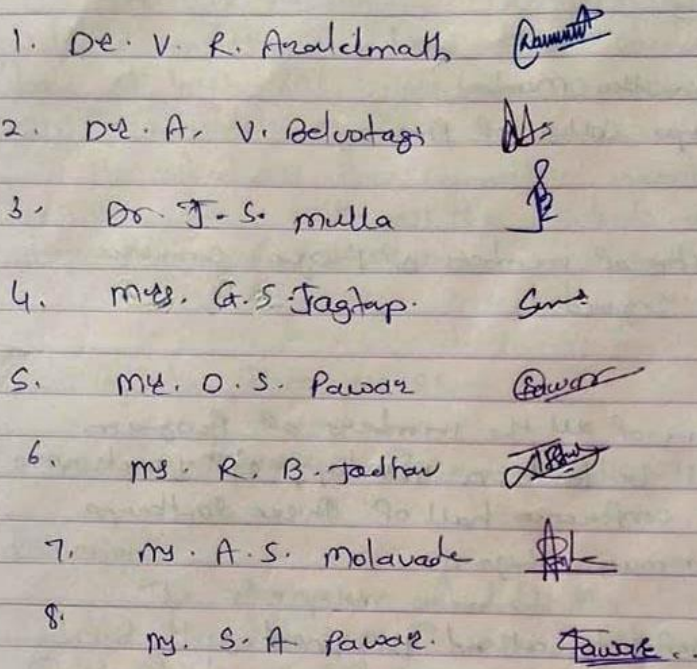 1. Dr. V. R. Aralelmath
2. Dr. A. V. Belvotagi
3. Dr. J. S. Mulla
4. Mrs. G. S. Jagtap.
5. Mr. O. S. Pawar Pawar
6. Ms. R. B. Jadhav
7. Ms. A. S. Molavade
8. Ms. S. A Pawar. Pawar.